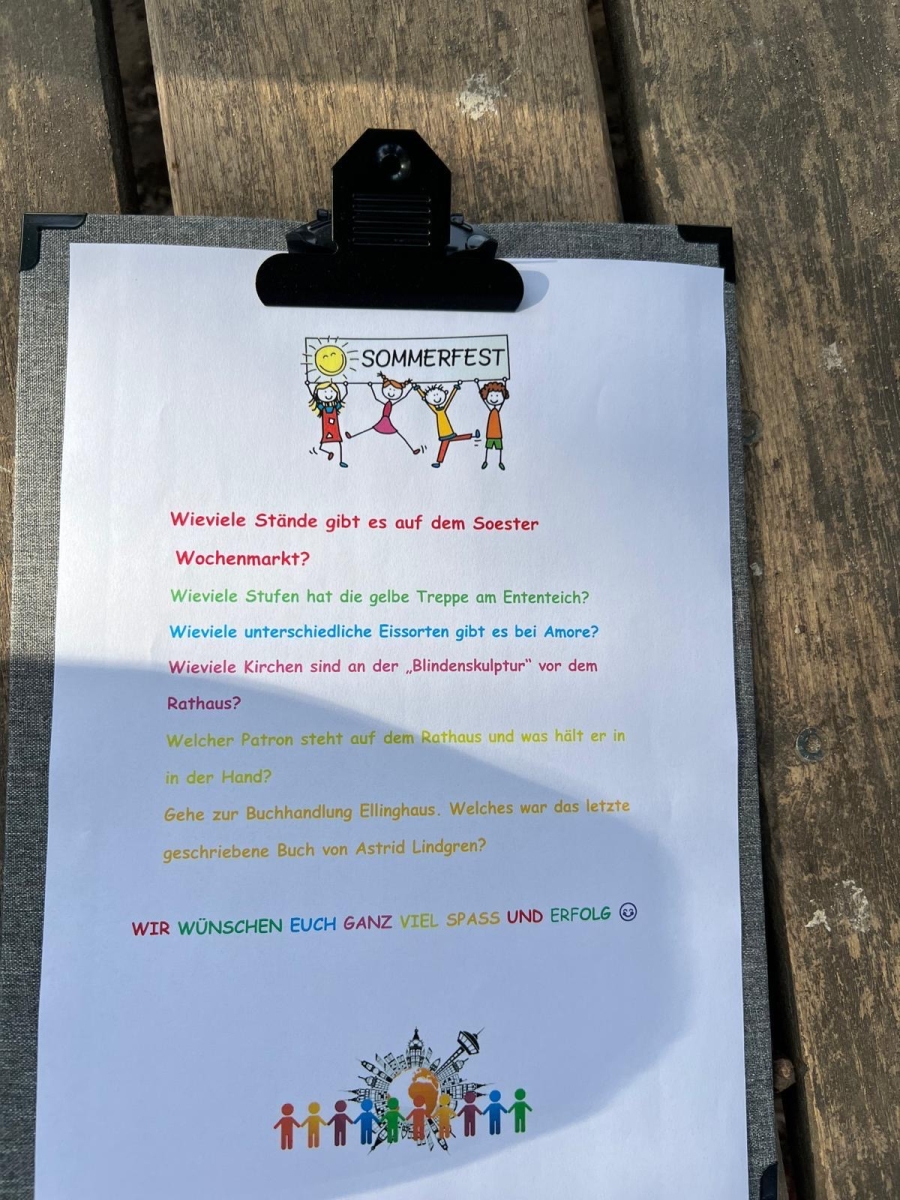 SOMMERFEST
Wieviele Stände gibt es auf dem Soester
Wochenmarkt?
Wieviele Stufen hat die gelbe Treppe am Ententeich?
Wieviele unterschiedliche Eissorten gibt es bei Amore?
Wieviele Kirchen sind an der „Blindenskulptur" vor dem
Rathaus?
Welcher Patron steht auf dem Rathaus und was hält er in
in der Hand?
Gehe zur Buchhandlung Ellinghaus. Welches war das letzte
geschriebene Buch von Astrid Lindgren?
WIR WÜNSCHEN EUCH GANZ VIEL SPASS UND ERFOLG ☺